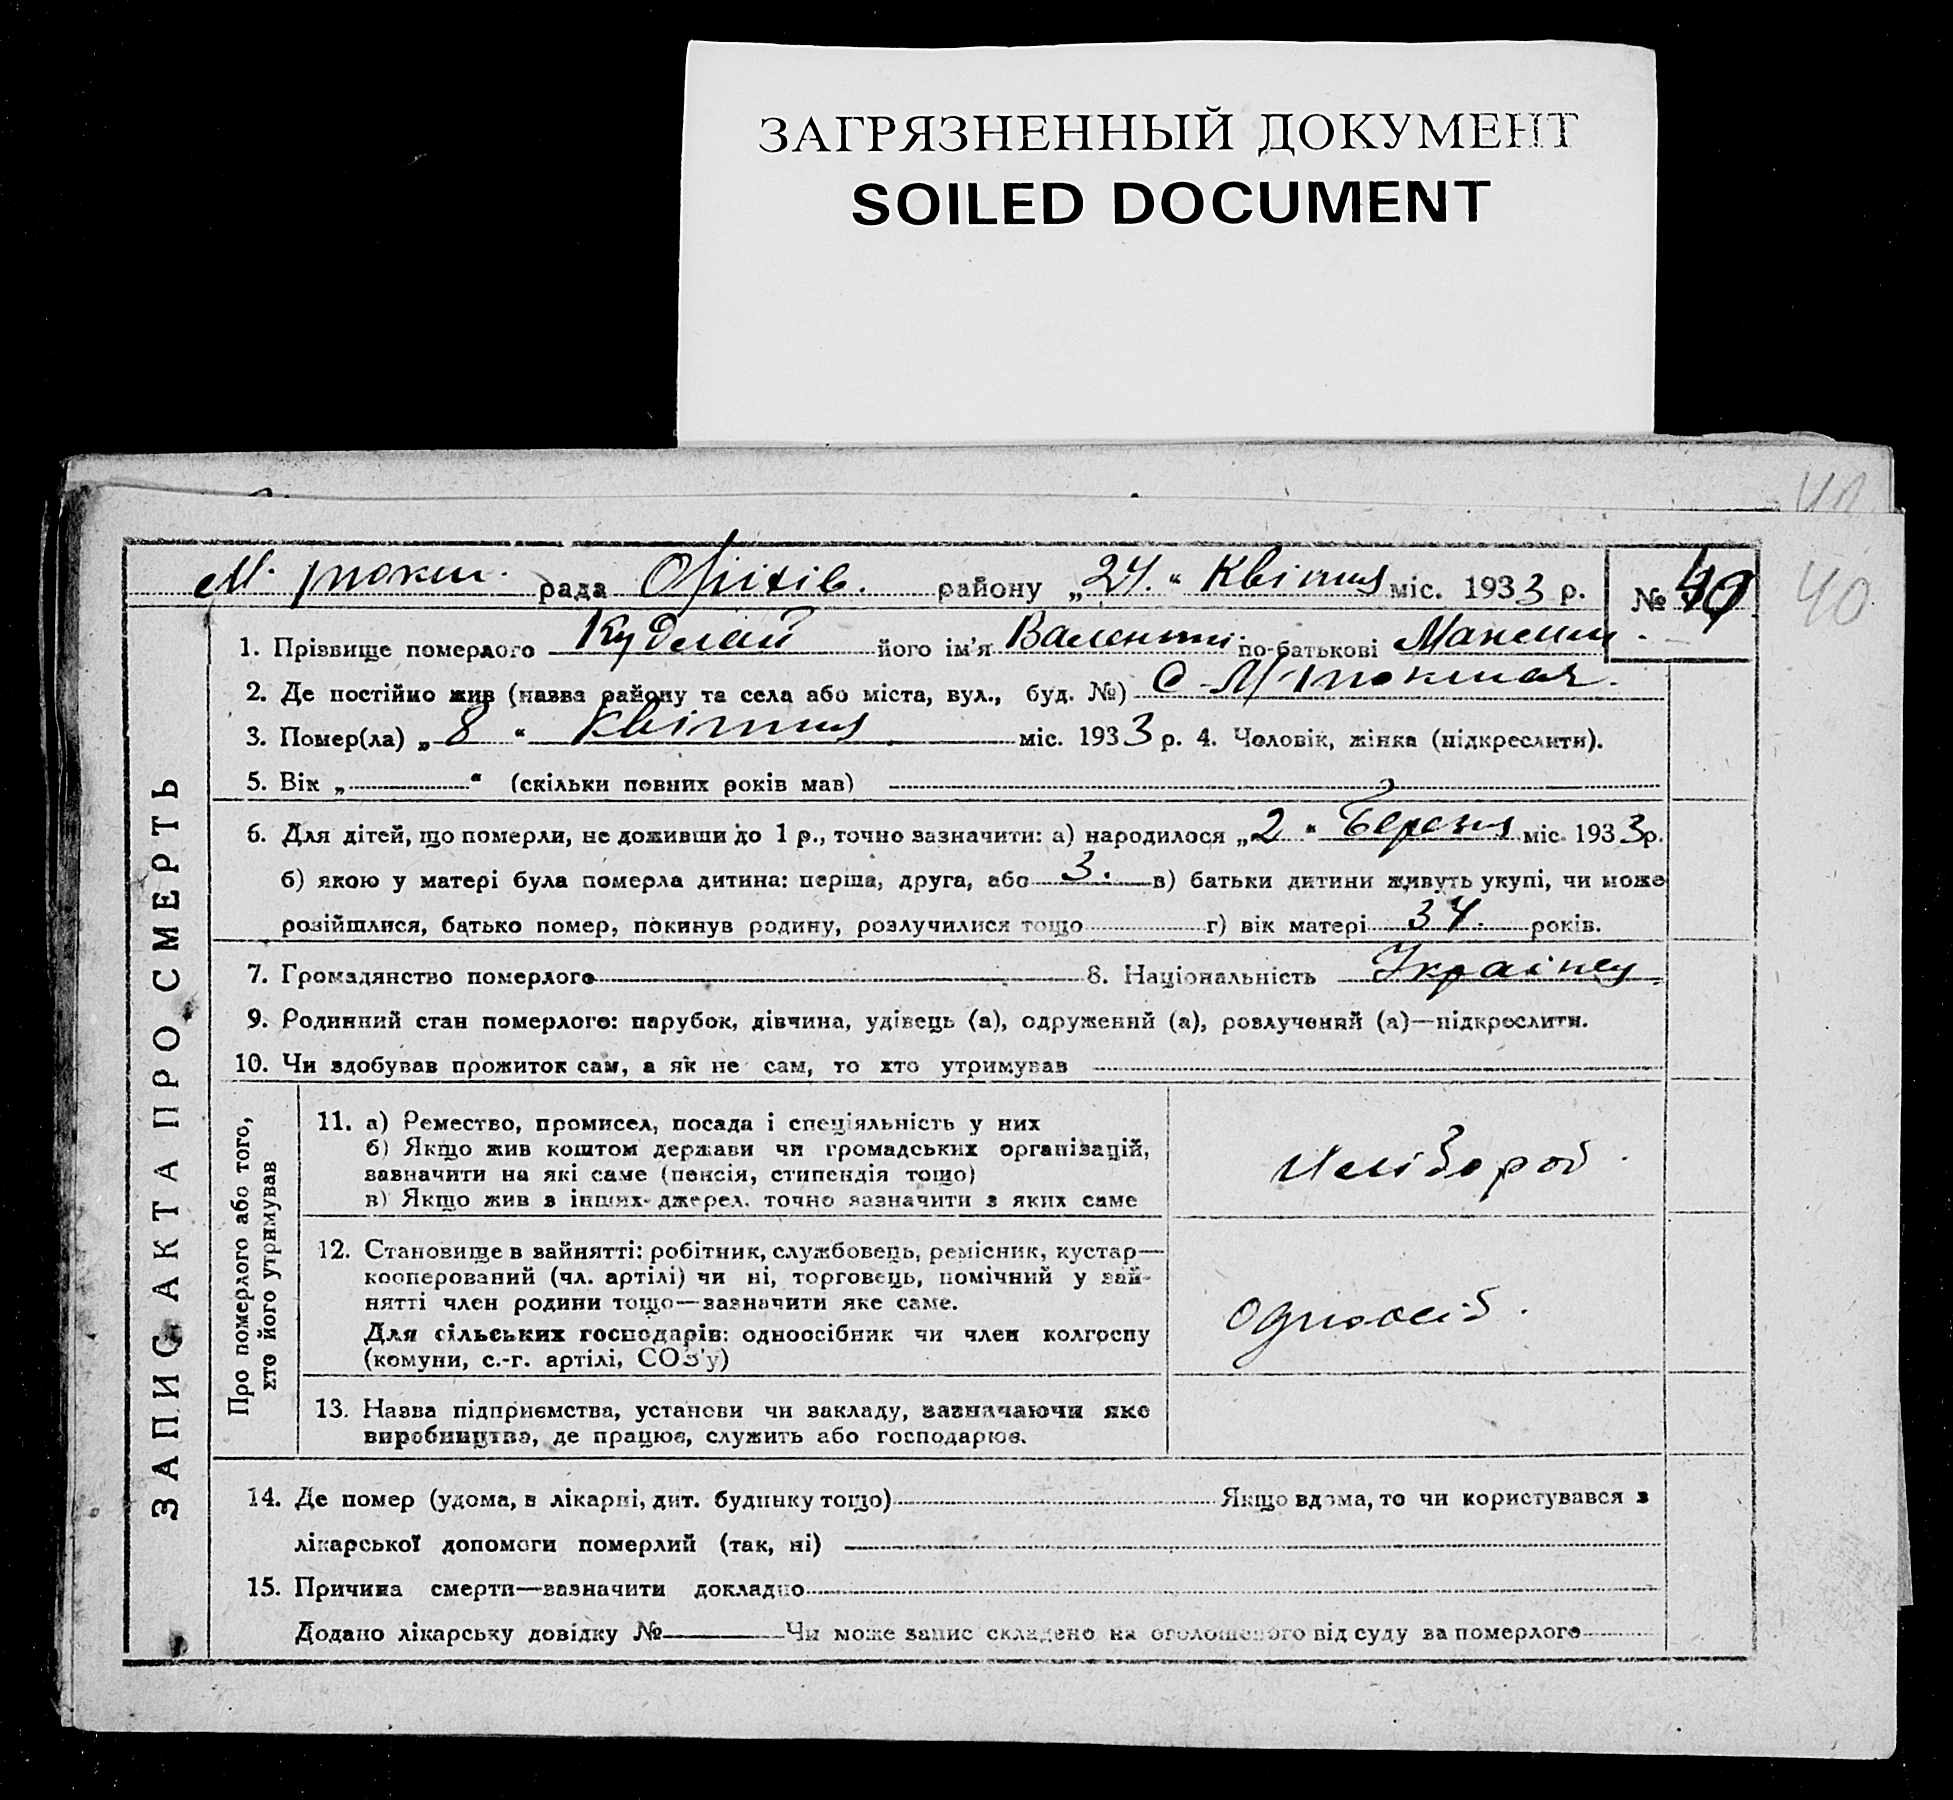 ЗАГРЯЗНЕННЫЙ ДОКУМЕНТ
SOILED DOCUMENT
41
М. токм. рада Оріхів. району „24." Квітня міс. 1933 р. № 40
40
1. Прізвище померлого Куделай його ім'я Валентин по-батькові Максим.
2. Де постійно жив (назва району та села або міста, вул., буд. №) С М Токмач.
3. Помер(ла) „8" Квітня міс. 1933 р. 4. Чоловік, жінка (підкреслити).
5. Вік „ " (скільки повних років мав)
6. Для дітей, що померли, не доживши до 1 р., точно зазначити: а) народилося „2" Березня міс. 1933 р.
б) якою у матері була померла дитина: перша, друга, або 3. в) батьки дитини живуть укупі, чи може
розійшлися, батько помер, покинув родину, розлучилися тощо г) вік матері 34. років.
7. Громадянство померлого 8. Національність Українец
9. Родинний стан померлого: парубок, дівчина, удівець (а), одружений (а), розлучений (а)—підкреслити.
10. Чи здобував прожиток сам, а як не сам, то хто утримував
ЗАПИС АКТА ПРО СМЕРТЬ
Про померлого або того,
хто його утримував
11. а) Ремество, промисел, посада і спеціяльність у них
б) Якщо жив коштом держави чи громадських організацій,
зазначити на які саме (пенсія, стипендія тощо)
в) Якщо жив з інших джерел, точно зазначити з яких саме
Хлібороб.
12. Становище в зайнятті: робітник, службовець, ремісник, кустар—
кооперований (чл. артілі) чи ні, торговець, помічний у зай-
нятті член родини тощо—зазначити яке саме.
Для сільських господарів: одноосібник чи член колгоспу
(комуни, с.-г. артілі, СОЗ'у)
Одноосіб.
13. Назва підприємства, установи чи закладу, зазначаючи яке
виробництво, де працює, служить або господарює.
14. Де помер (удома, в лікарні, дит. будинку тощо) Якщо вдома, то чи користувався з
лікарської допомоги померлий (так, ні)
15. Причина смерти—зазначити докладно
Додано лікарську довідку № Чи може запис складено на оголошеного від суду за померлого